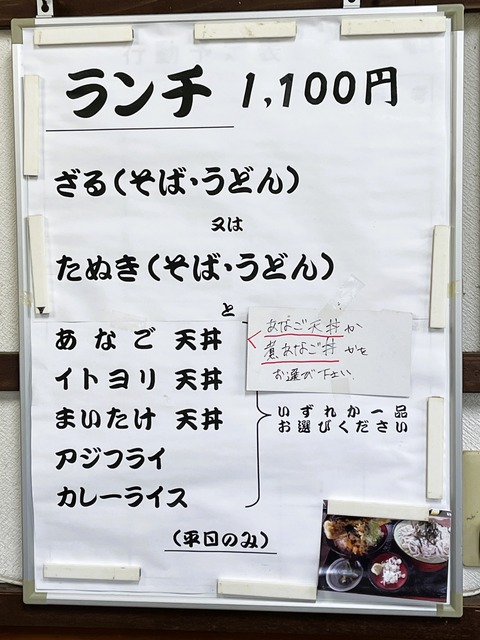 ランチ 1,100円
ざる(そば・うどん)
又は
たぬき(そば・うどん)
と
あなご 天丼
あなご天丼か
煮あなご丼かを
お選び下さい。
イトヨリ 天丼
まいたけ 天丼
アジフライ
カレーライス
いずれか一品
お選びください
(平日のみ)